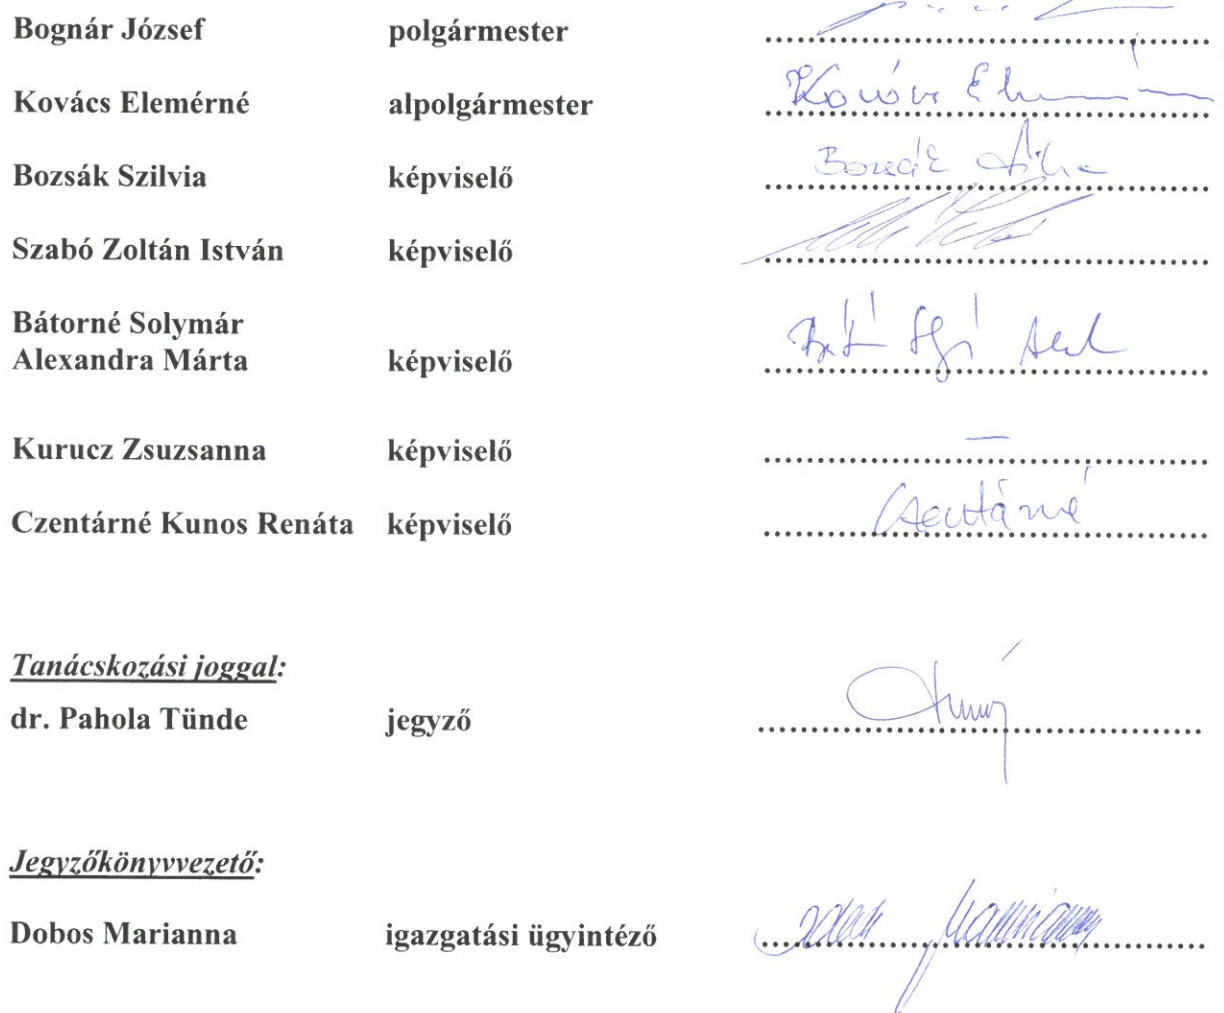 Bognár József polgármester
Kovács Elemérné alpolgármester Kovács Elemérné
Bozsák Szilvia képviselő Bozsák Szilvia
Szabó Zoltán István képviselő
Bátorné Solymár
Alexandra Márta képviselő
Kurucz Zsuzsanna képviselő –
Czentárné Kunos Renáta képviselő Czentárné
Tanácskozási joggal:
dr. Pahola Tünde jegyző
Jegyzőkönyvvezető:
Dobos Marianna igazgatási ügyintéző